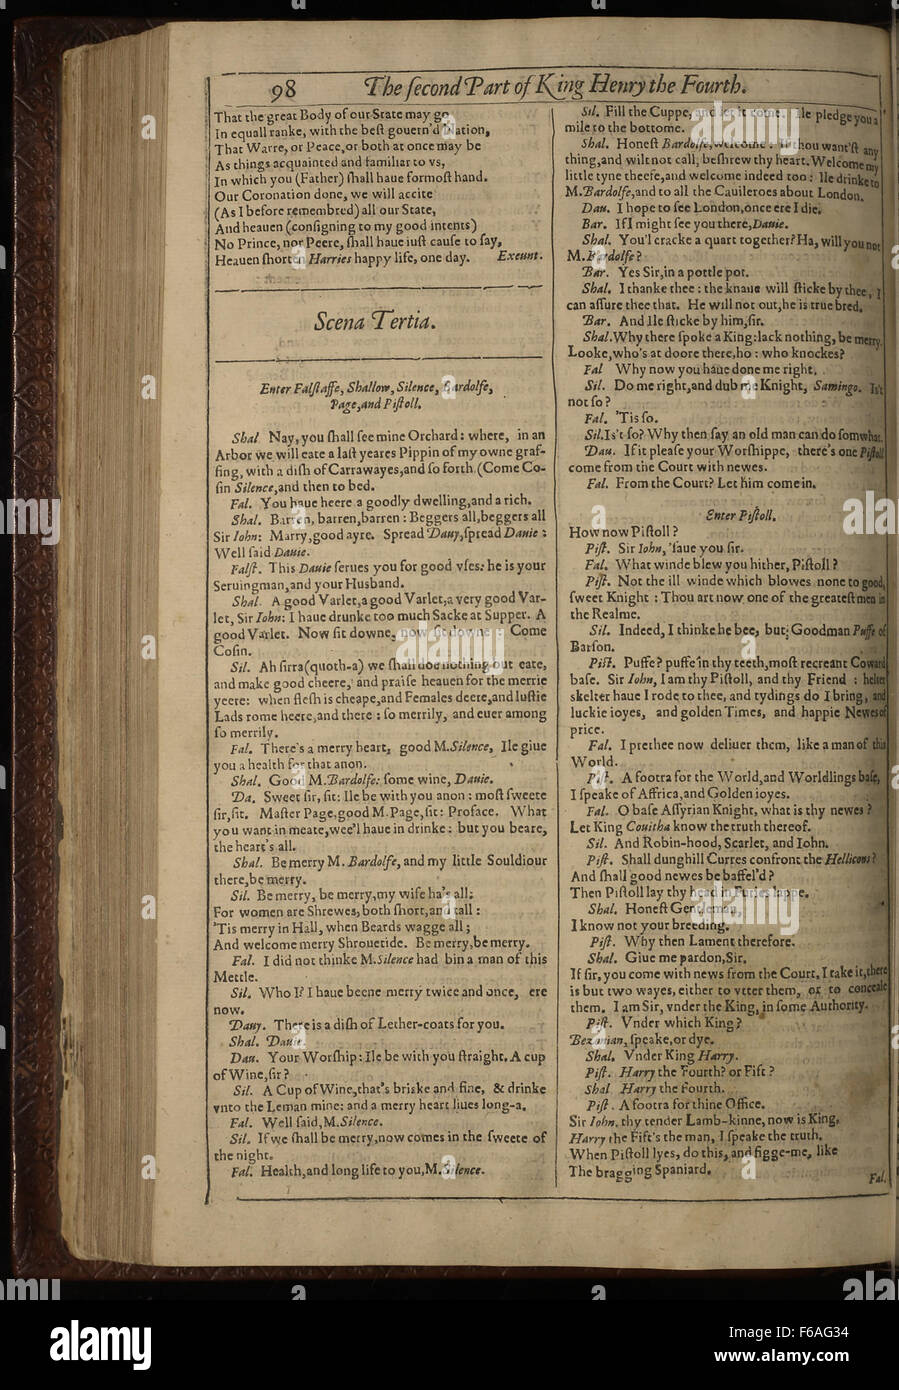 98 The ſecond Part of King Henry the Fourth.
That the great Body of our State may go
In equall ranke, with the beſt gouern'd Nation,
That Warre, or Peace, or both at once may be
As things acquainted and familiar to vs,
In which you (Father) ſhall haue formoſt hand.
Our Coronation done, we will accite
(As I before remembred) all our State,
And heauen (conſigning to my good intents)
No Prince, nor Peere, ſhall haue iuſt cauſe to ſay,
Heauen ſhorten Harries happy life, one day. Exeunt.
Scena Tertia.
Enter Falſtaffe, Shallow, Silence, Bardolfe,
Page, and Piſtoll.
Shal Nay, you ſhall ſee mine Orchard: where, in an
Arbor we will eate a laſt yeares Pippin of my owne graf-
fing, with a diſh of Carrawayes, and ſo forth (Come Co-
ſin Silence, and then to bed.
Fal. You haue heere a goodly dwelling, and a rich.
Shal. Barren, barren, barren: Beggers all, beggers all
Sir Iohn: Marry, good ayre. Spread Dauy, ſpread Dauie:
Well ſaid Dauie.
Falſt. This Dauie ſerues you for good vſes: he is your
Seruingman, and your Husband.
Shal. A good Varlet, a good Varlet, a very good Var-
let, Sir Iohn: I haue drunke too much Sacke at Supper. A
good Varlet. Now ſit downe, now ſit downe: Come
Coſin.
Sil. Ah ſirra (quoth-a) we ſhall doe nothing but eate,
and make good cheere, and praiſe heauen for the merrie
yeere: when fleſh is cheape, and Females deere, and luſtie
Lads rome heere, and there: ſo merrily, and euer among
ſo merrily.
Fal. There's a merry heart, good M. Silence, Ile giue
you a health for that anon.
Shal. Good M. Bardolfe: ſome wine, Dauie.
Da. Sweet ſir, ſit: Ile be with you anon: moſt ſweete
ſir, ſit. Maſter Page, good M. Page, ſit: Proface. What
you want in meate, wee'l haue in drinke: but you beare,
the heart's all.
Shal. Be merry M. Bardolfe, and my little Souldiour
there, be merry.
Sil. Be merry, be merry, my wife ha's all;
For women are Shrewes, both ſhort, and tall:
'Tis merry in Hall, when Beards wagge all;
And welcome merry Shrouetide. Be merry, be merry.
Fal. I did not thinke M. Silence had bin a man of this
Mettle.
Sil. Who I? I haue beene merry twice and once, ere
now.
Dauy. There is a diſh of Lether-coats for you.
Shal. Dauie.
Dau. Your Worſhip: Ile be with you ſtraight. A cup
of Wine, ſir?
Sil. A Cup of Wine, that's briske and fine, & drinke
vnto the Leman mine: and a merry heart liues long-a.
Fal. Well ſaid, M. Silence.
Sil. If we ſhall be merry, now comes in the ſweete of
the night.
Fal. Health, and long life to you, M. Silence.
Sil. Fill the Cuppe, and let it come. Ile pledge you a
mile to the bottome.
Shal. Honeſt Bardolfe, welcome: If thou want'ſt any
thing, and wilt not call, beſhrew thy heart. Welcome my
little tyne theefe, and welcome indeed too: Ile drinke to
M. Bardolfe, and to all the Cauileroes about London.
Dau. I hope to ſee London, once ere I die.
Bar. If I might ſee you there, Dauie.
Shal. You'l cracke a quart together? Ha, will you not
M. Bardolfe?
Bar. Yes Sir, in a pottle pot.
Shal. I thanke thee: the knaue will ſticke by thee, I
can aſſure thee that. He will not out, he is true bred.
Bar. And Ile ſticke by him, ſir.
Shal. Why there ſpoke a King: lack nothing, be merry.
Looke, who's at doore there, ho: who knockes?
Fal Why now you haue done me right.
Sil. Do me right, and dub me Knight, Samingo. Is't
not ſo?
Fal. 'Tis ſo.
Sil. Is't ſo? Why then ſay an old man can do ſomwhat.
Dau. If it pleaſe your Worſhippe, there's one Piſtoll
come from the Court with newes.
Fal. From the Court? Let him come in.
Enter Piſtoll.
How now Piſtoll?
Piſt. Sir Iohn, 'ſaue you ſir.
Fal. What winde blew you hither, Piſtoll?
Piſt. Not the ill winde which blowes none to good,
ſweet Knight: Thou art now one of the greateſt men in
the Realme.
Sil. Indeed, I thinke he bee, but Goodman Puffe of
Barſon.
Piſt. Puffe? puffe in thy teeth, moſt recreant Coward
baſe. Sir Iohn, I am thy Piſtoll, and thy Friend: helter
skelter haue I rode to thee, and tydings do I bring, and
luckie ioyes, and golden Times, and happie Newes of
price.
Fal. I prethee now deliuer them, like a man of this
World.
Piſt. A footra for the World, and Worldlings baſe,
I ſpeake of Affrica, and Golden ioyes.
Fal. O baſe Aſſyrian Knight, what is thy newes?
Let King Couitha know the truth thereof.
Sil. And Robin-hood, Scarlet, and Iohn.
Piſt. Shall dunghill Curres confront the Hellicons?
And ſhall good newes be baffel'd?
Then Piſtoll lay thy head in Furies lappe.
Shal. Honeſt Gentleman,
I know not your breeding.
Piſt. Why then Lament therefore.
Shal. Giue me pardon, Sir.
If ſir, you come with news from the Court, I take it, there
is but two wayes, either to vtter them, or to conceale
them. I am Sir, vnder the King, in ſome Authority.
Piſt. Vnder which King?
Bezonian, ſpeake, or dye.
Shal. Vnder King Harry.
Piſt. Harry the Fourth? or Fift?
Shal Harry the Fourth.
Piſt. A footra for thine Office.
Sir Iohn, thy tender Lamb-kinne, now is King,
Harry the Fift's the man, I ſpeake the truth.
When Piſtoll lyes, do this, and figge-me, like
The bragging Spaniard.
Fal.
alamy
Image ID: F6AG34
www.alamy.com